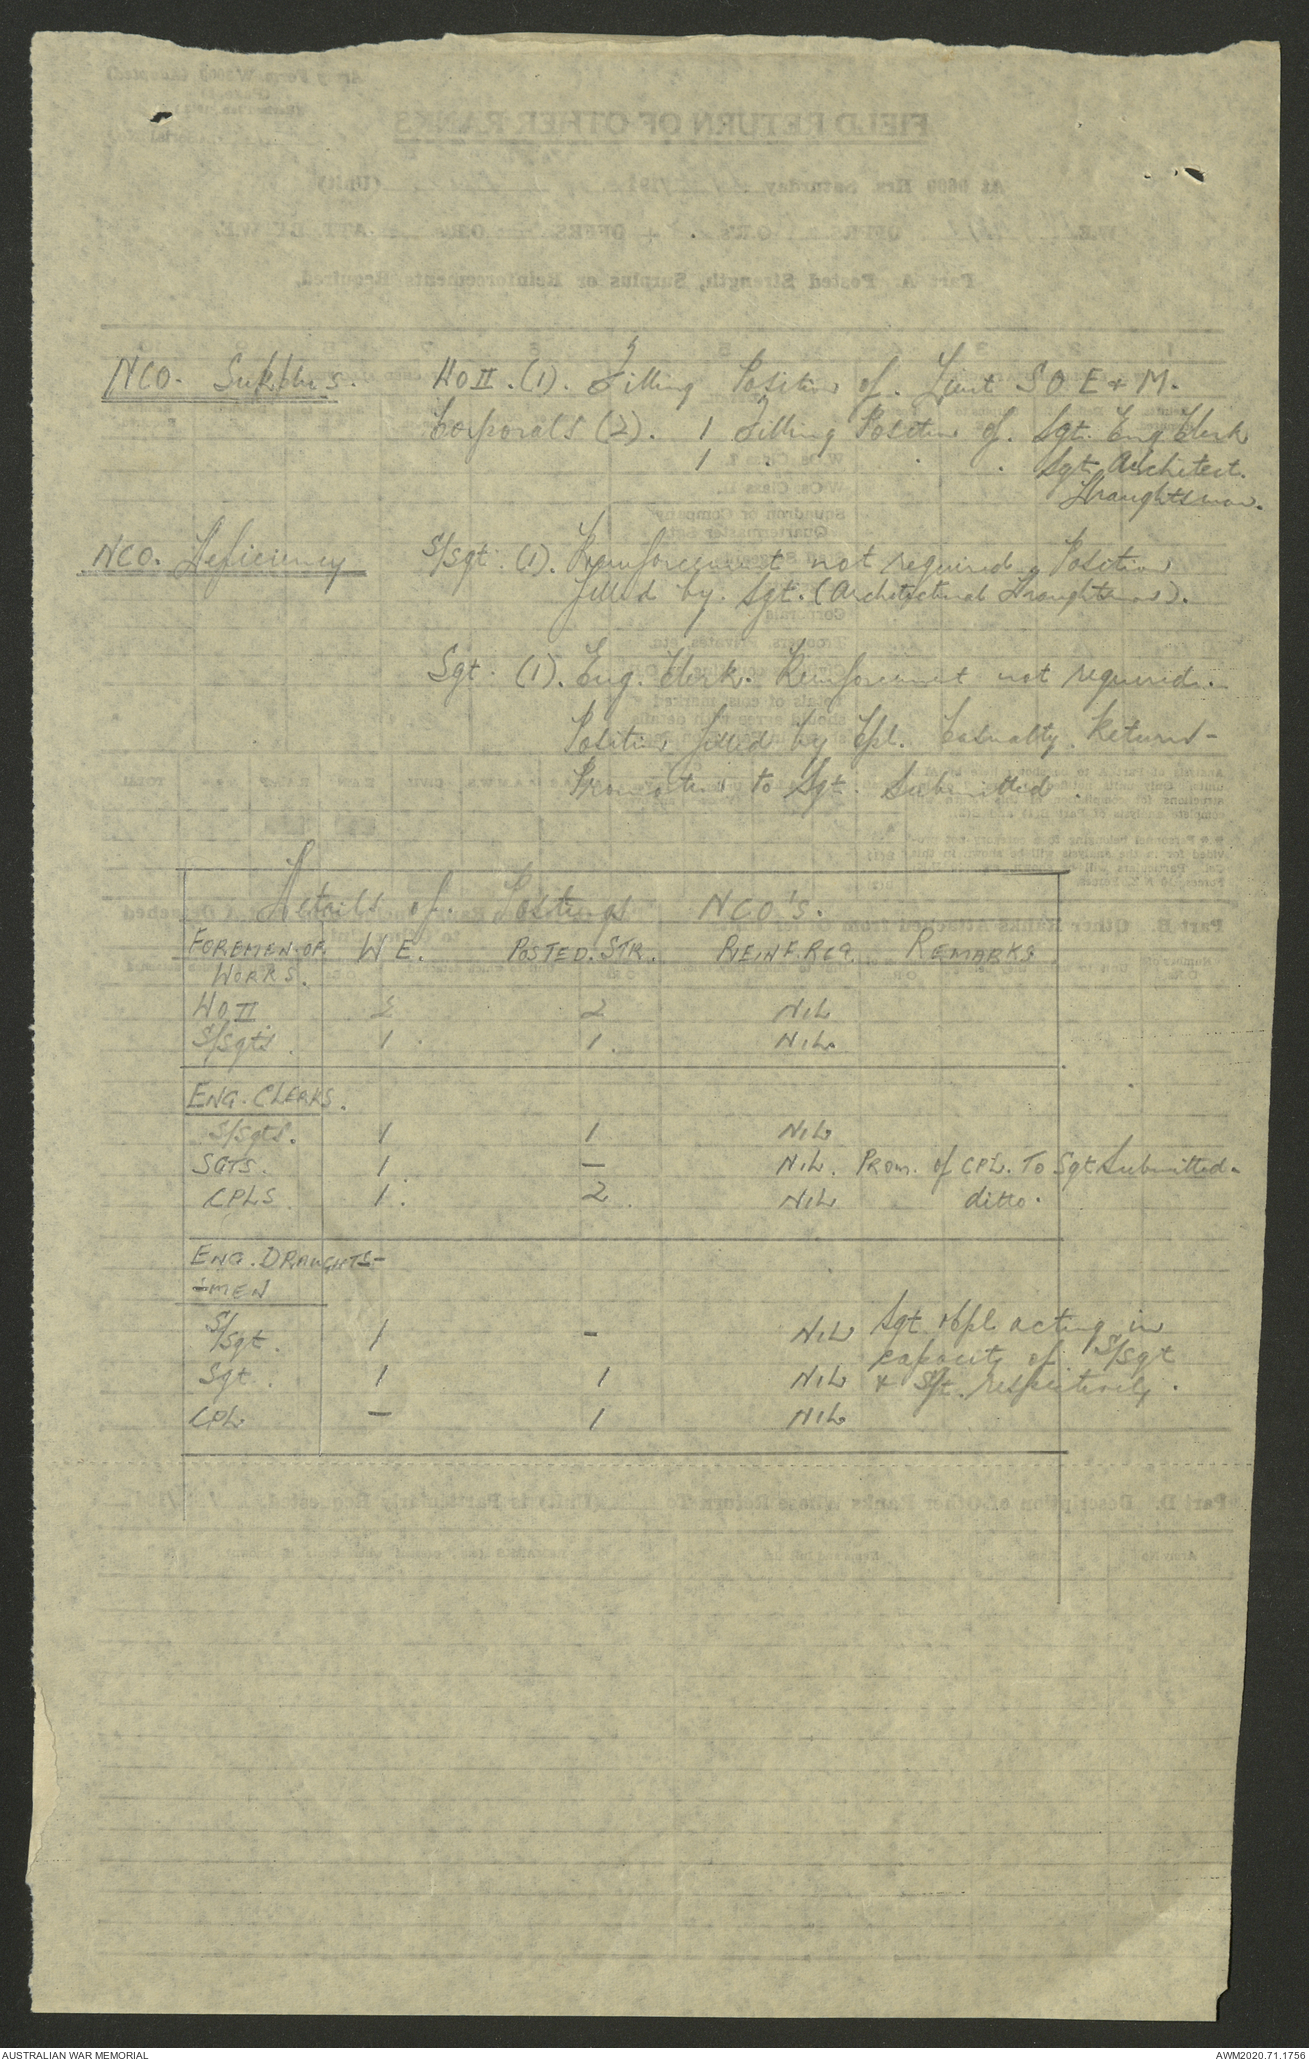 NCO. Surplus. WO II. (1). Filling Position of. Lieut S O E & M.
Corporals (2). 1 Filling Position of. Sgt. Eng Clerk
1 " " . Sgt. Architect.
Draughtsman.
NCO. Deficiency S/Sgt. (1). Reinforcement not required. Position
filled by Sgt. (Architectural Draughtsman).
Sgt. (1). Eng. Clerk. Reinforcement not required.
Position filled by Cpl. Casualty Return -
Promotion to Sgt. Submitted.
Details of. Postings NCO's.
FOREMEN. OF. WORKS. W E. POSTED. STR. REINF. REQ. REMARKS
WO II 2 2 NIL
S/Sgts. 1. 1. NIL.
ENG. CLERKS.
S/Sgts. 1 1 NIL
SGTS. 1 — NIL. PROM. of CPL. TO Sgt Submitted.
CPLS 1. 2. NIL ditto.
ENG. DRAUGHTS-
-MEN
S/Sgt. 1 - NIL Sgt & Cpl acting in
capacity of. S/Sgt
Sgt. 1 1 NIL & Sgt. respectively.
CPL — 1 NIL
FIELD RETURN OF OTHER RANKS
At 0600 Hrs. Saturday
Part A. Posted Strength, Surplus or Reinforcements Required.
Part B. Other Ranks Attached from Other Units
Part D. Description of Other Ranks Whose Return To (Unit) is Particularly Requested.
AUSTRALIAN WAR MEMORIAL
AWM2020.71.1756